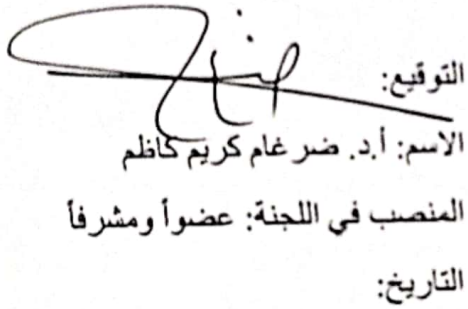 التوقيع:
الاسم: أ.د. ضرغام كريم كاظم
المنصب في اللجنة: عضواً ومشرفاً
التاريخ: